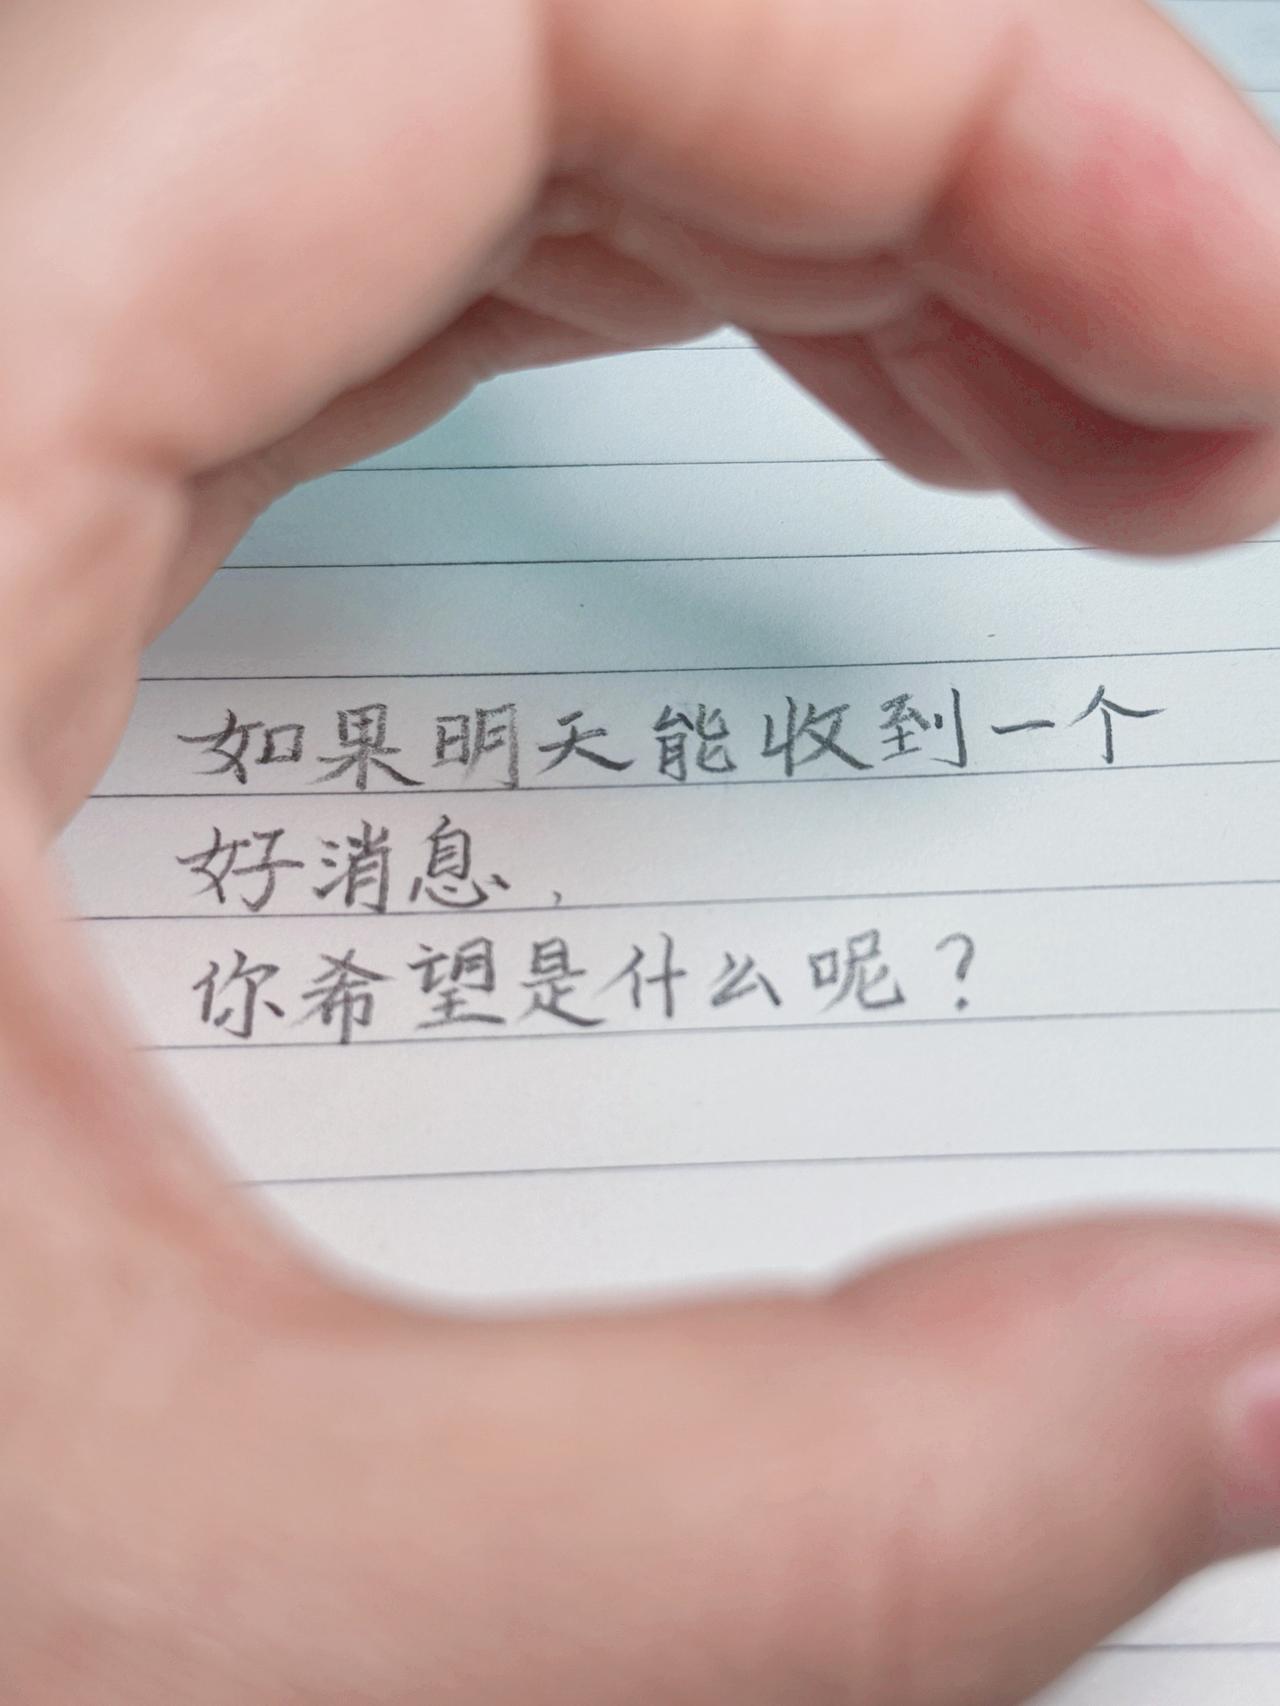 如果明天能收到一个
好消息，
你希望是什么呢？